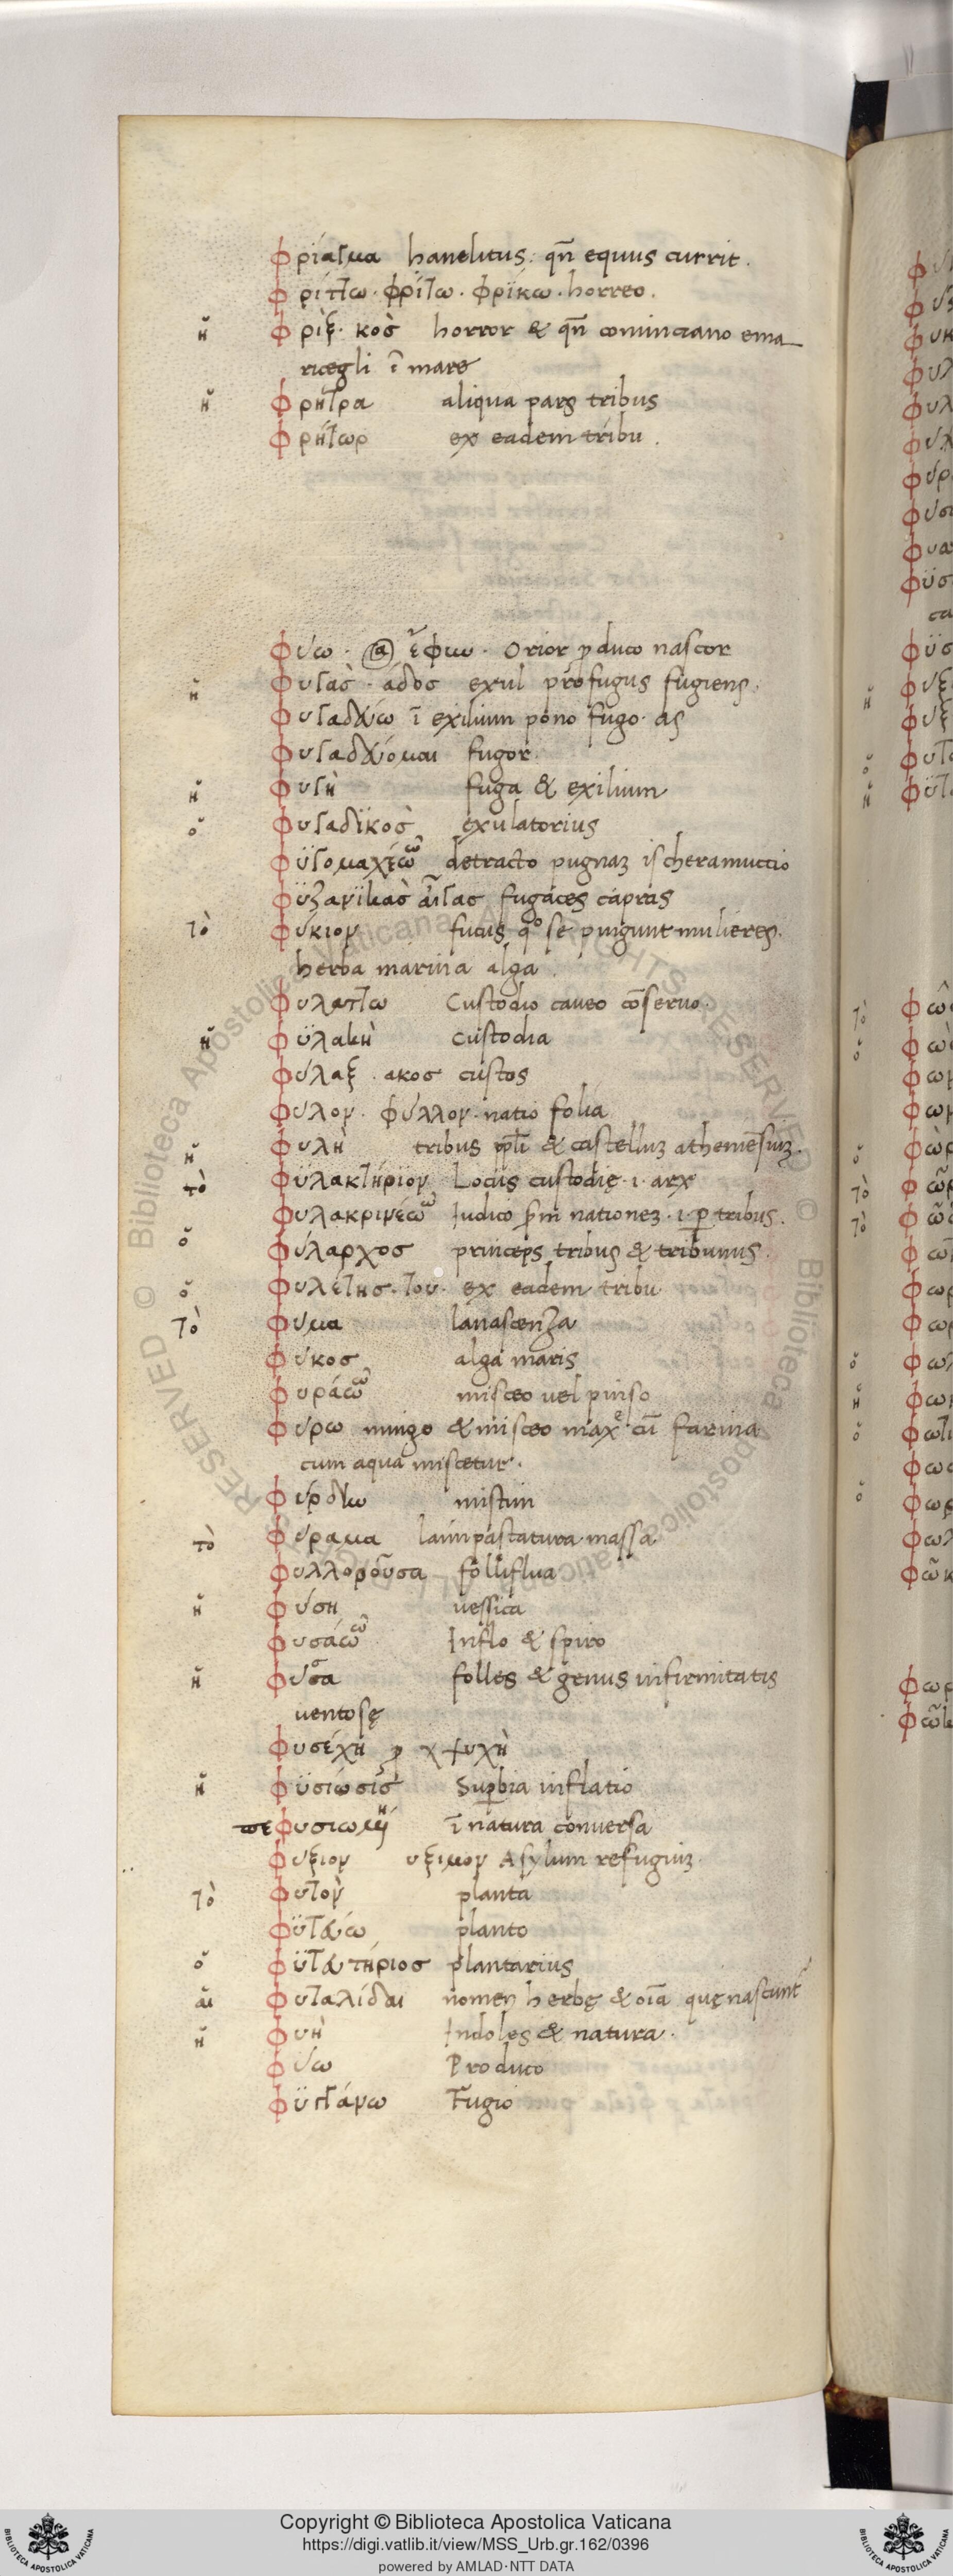 φρίαγμα hanelitus: qn̄ equus currit.
φρίττω. φρίτω. φρΐκω. horreo.
ἡ φρὶξ. κὸσ horror & qn̄ cominciano ema
ricegli ī mare
ἡ φρήτρα aliqua pars tribus
φρήτωρ ex eadem tribu.
φύω. orior ꝓduco nascor
ἡ φυγὰσ. άδοσ exul profugus fugiens.
φυγαδεύω ī exilium pono fugo. as
φυγαδεύομαι fugor.
ἡ φυγὴ fuga & exilium
ὁ φυγαδϊκὸσ exulatorius
φϋγομαχέω̃ detracto pugnaꝫ ischeramuccio
φϋζανϊκὰσ ἆιγασ fugaces capras
τὸ φύκιον fucus q° se pingunt mulieres.
herba marina alga.
φυλαττω Custodio caveo cōservo.
ἡ φϋλακὴ custodia
φύλαξ. ακοσ custos
φυλον. φύλλον. natio folia
ἡ φυλὴ tribus & castelluꝫ atheniēsiuꝫ.
τὸ φϋλακτήριον Locus custodię. i. arx
φυλακρινέω Iudico nationeꝫ. i. ꝑ tribus.
ὁ φύλαρχοσ princeps tribus & tribunus.
ὁ φυλέτησ. του. ex eadem tribu
τὸ φύμα lanascenza
φύκοσ alga maris
φυράω misceo uel pinso
φύρω mingo & misceo maxe. cū farina
cum aqua miscetur.
φύρδην mistim
τὸ φύραμα laimpastatura. massa
φυλλοροῦσα folliflua
ἡ φύση vessica
φυσάω Inflo & spiro
ἡ φύσα folles & genus infirmitatis
uentosę
φυσέχη ꝓ χ ψυχὴ
ἡ φϋσίωσισ Suꝑbia inflatio
ī natura conversa
φυξιον υξιμον Asylum refugiuꝫ.
τὸ φυτὸν planta
φϋτεύω planto
ὁ φϋτευτήριοσ plantarius
αἱ φυταλίδαι nomen herbę & oīa quę nascunt᷒
ἡ φυὴ Indoles & natura.
φύω Produco
φϋγγάνω Fugio
Copyright © Biblioteca Apostolica Vaticana
https://digi.vatlib.it/view/MSS_Urb.gr.162/0396
powered by AMLAD·NTT DATA